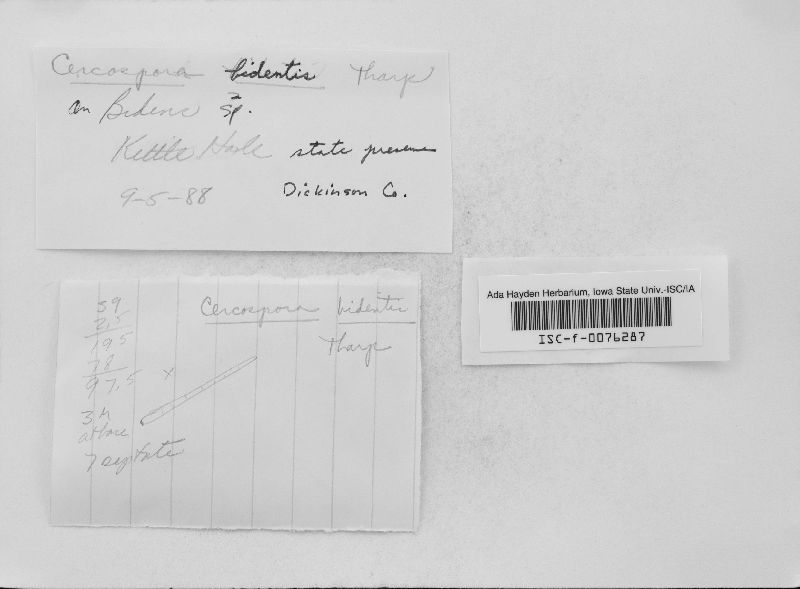 Cercospora bidentis Tharp
on Bidens sp.
Kettle Hole state preserve
9-5-88 Dickinson Co.
Ada Hayden Herbarium, Iowa State Univ.-ISC/IA
ISC-f-0076287
Cercospora bidentis
Tharp
39
2.5
195
78
97.5 x
3 µ
at base
7 septate